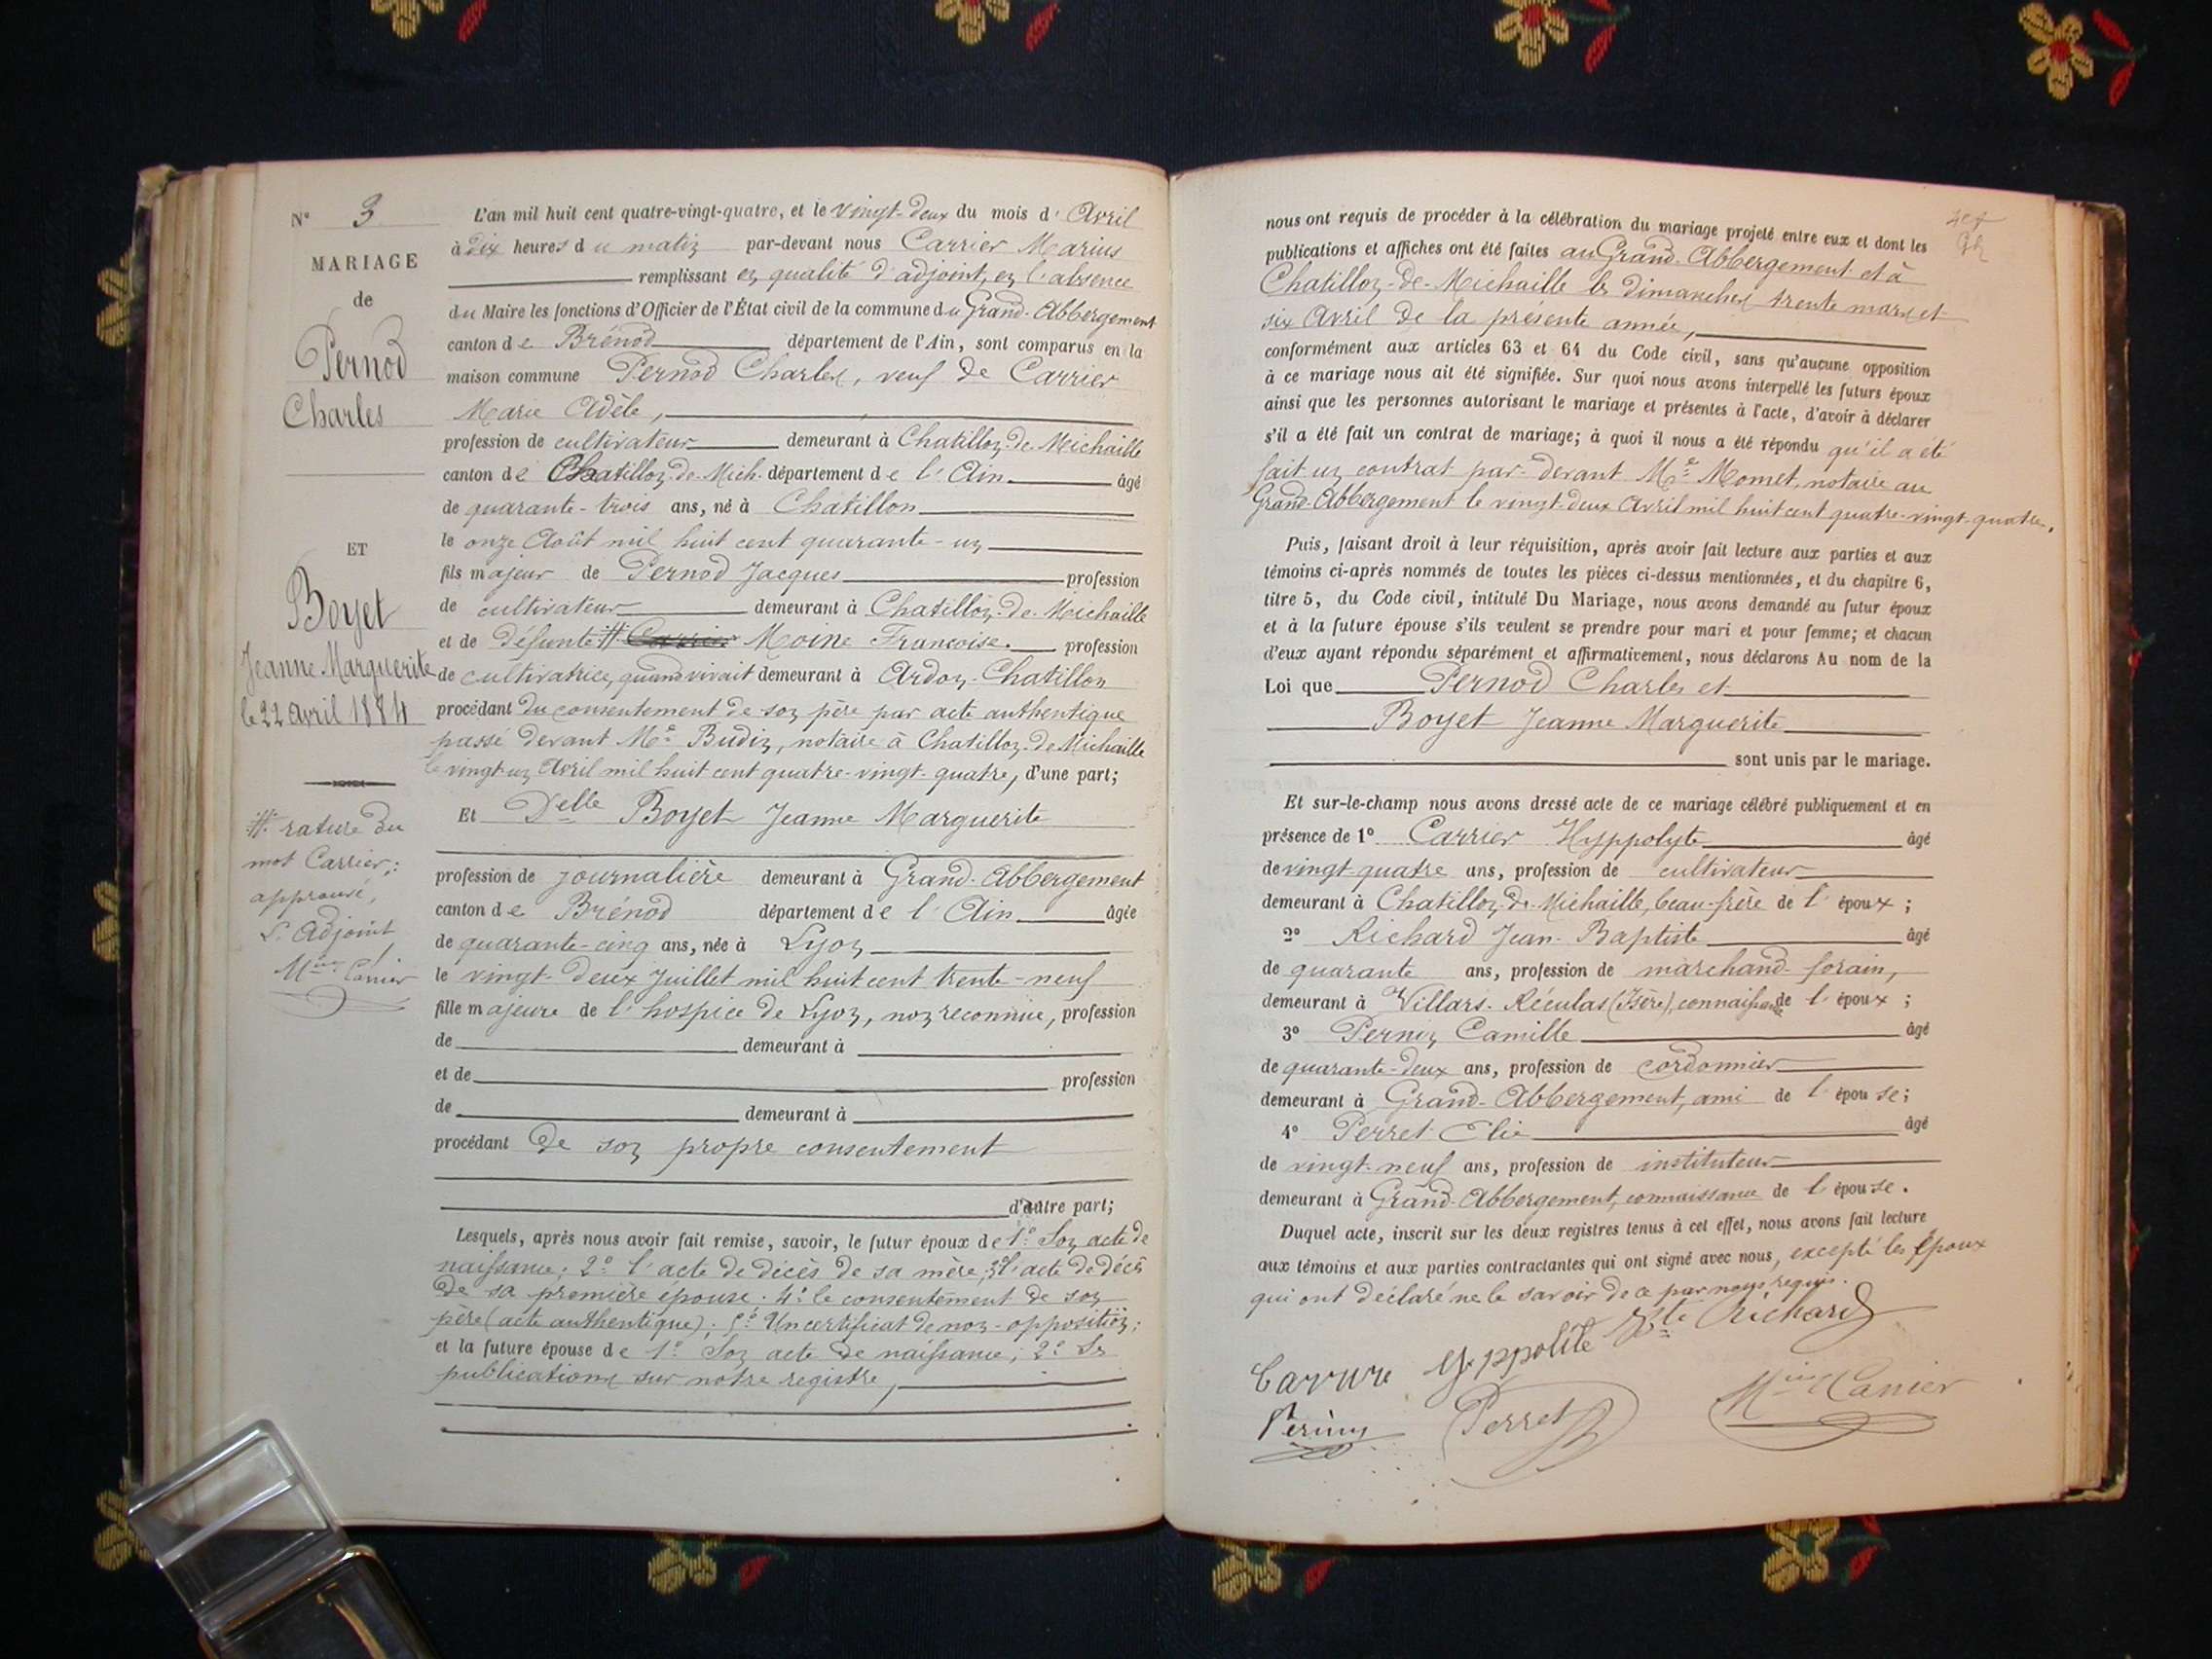 N° 3
MARIAGE
de
Pernod
Charles
ET
Boyet
Jeanne Marguerite
le 22 avril 1884
# rature du
mot Carrier;
approuvé,
L'adjoint
Mius Carrier
L'an mil huit cent quatre-vingt-quatre, et le vingt-deux du mois d'Avril
à dix heures du matin par-devant nous Carrier Marius
remplissant en qualité d'adjoint, en l'absence
du Maire les fonctions d'Officier de l'État civil de la commune du Grand-Abbergement
canton de Brénod département de l'Ain, sont comparus en la
maison commune Pernod Charles, veuf de Carrier
Marie Adèle,
profession de cultivateur demeurant à Chatillon-de-Michaille
canton de Chatillon-de-Mich. département de l'Ain âgé
de quarante-trois ans, né à Chatillon
le onze Août mil huit cent quarante-un
fils majeur de Pernod Jacques profession
de cultivateur demeurant à Chatillon-de-Michaille
et de défunte # Carrier Moine Françoise. profession
de cultivatrice, quand vivait demeurant à Ardon-Chatillon
procédant du consentement de son père par acte authentique
passé devant Me Budin, notaire à Chatillon-de-Michaille
le vingt-un Avril mil huit cent quatre-vingt-quatre, d'une part;
Et Delle Boyet Jeanne Marguerite
profession de journalière demeurant à Grand-Abbergement
canton de Brénod département de l'Ain âgée
de quarante-cinq ans, née à Lyon
le vingt-deux Juillet mil huit cent trente-neuf
fille majeure de l'hospice de Lyon, non reconnue, profession
de demeurant à
et de profession
de demeurant à
procédant de son propre consentement
d'autre part;
Lesquels, après nous avoir fait remise, savoir, le futur époux de 1° Son acte de
naissance; 2° l'acte de décès de sa mère; 3° l'acte de décès
de sa première épouse. 4° le consentement de son
père (acte authentique); 5° Un certificat de non-opposition;
et la future épouse de 1° Son acte de naissance; 2° Les
publications sur notre registre,
nous ont requis de procéder à la célébration du mariage projeté entre eux et dont les
publications et affiches ont été faites au Grand-Abbergement et à
Chatillon-de-Michaille les dimanches trente mars et
six Avril de la présente année,
conformément aux articles 63 et 64 du Code civil, sans qu'aucune opposition
à ce mariage nous ait été signifiée. Sur quoi nous avons interpellé les futurs époux
ainsi que les personnes autorisant le mariage et présentes à l'acte, d'avoir à déclarer
s'il a été fait un contrat de mariage; à quoi il nous a été répondu qu'il a été
fait un contrat par-devant Me Momet, notaire au
Grand-Abbergement le vingt-deux Avril mil huit cent quatre-vingt-quatre.
Puis, faisant droit à leur réquisition, après avoir fait lecture aux parties et aux
témoins ci-après nommés de toutes les pièces ci-dessus mentionnées, et du chapitre 6,
titre 5, du Code civil, intitulé Du Mariage, nous avons demandé au futur époux
et à la future épouse s'ils veulent se prendre pour mari et pour femme; et chacun
d'eux ayant répondu séparément et affirmativement, nous déclarons Au nom de la
Loi que Pernod Charles et
Boyet Jeanne Marguerite
sont unis par le mariage.
Et sur-le-champ nous avons dressé acte de ce mariage célébré publiquement et en
présence de 1° Carrier Hyppolyte âgé
de vingt-quatre ans, profession de cultivateur
demeurant à Chatillon-de-Michaille, beau-frère de l'époux;
2° Richard Jean-Baptiste âgé
de quarante ans, profession de marchand-forain,
demeurant à Villars-Réculas (Isère), connaissance de l'époux;
3° Pernin Camille âgé
de quarante-deux ans, profession de cordonnier
demeurant à Grand-Abbergement, ami de l'épouse;
4° Perret Elie âgé
de vingt-neuf ans, profession de instituteur
demeurant à Grand-Abbergement, connaissance de l'épouse.
Duquel acte, inscrit sur les deux registres tenus à cet effet, nous avons fait lecture
aux témoins et aux parties contractantes qui ont signé avec nous, excepté les époux
qui ont déclaré ne le savoir de ce par nous requis.
Bte Richard
Hyppolite
Pernin Perret Mius Carrier